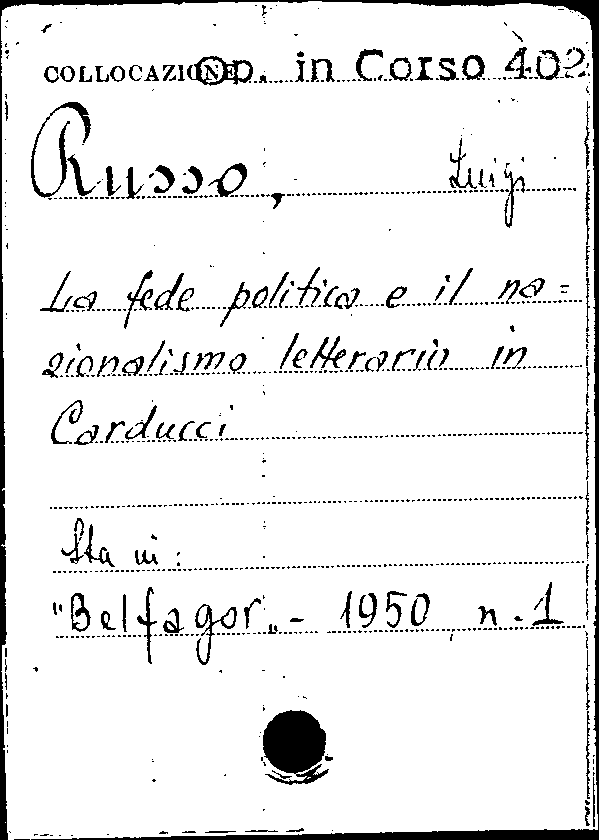 COLLOCAZIONE Op. in Corso 402
Russo, Luigi
La fede politica e il na=
zionalismo letterario in
Carducci
Sta in:
"Belfagor„ - 1950 n. 1